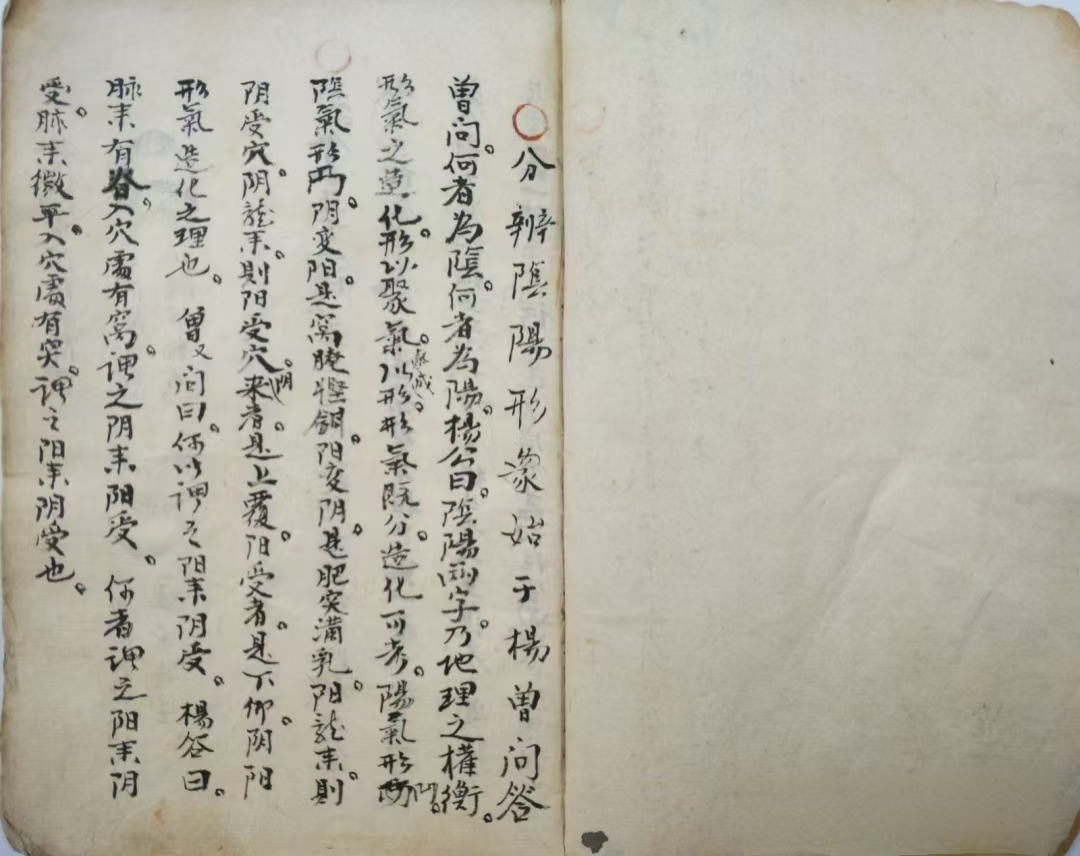 分辨陰陽形象始于楊曾问答
曽问。何者為陰。何者為陽。楊公曰。陰陽兩字。乃地理之權衡。
形氣之造化。形以聚氣。氣以成形。形氣既分。造化可考。陽氣形
陰氣形凸。阴变阳。是窝腌鉗。阳变阴。是肥突満乳。阳龍来。則
阴受穴。阴龍来。則阳受穴。阴来者。是上覆。阳受者。是下仰。阴阳
形氣造化之理也。曽又问曰。何以谓之阳来阴受。楊答曰。
脉来有脊。入穴處有窝。谓之阴来阳受。何者谓之阳来阴
受。脉来微平。入穴處有突。谓之阳来阴受也。